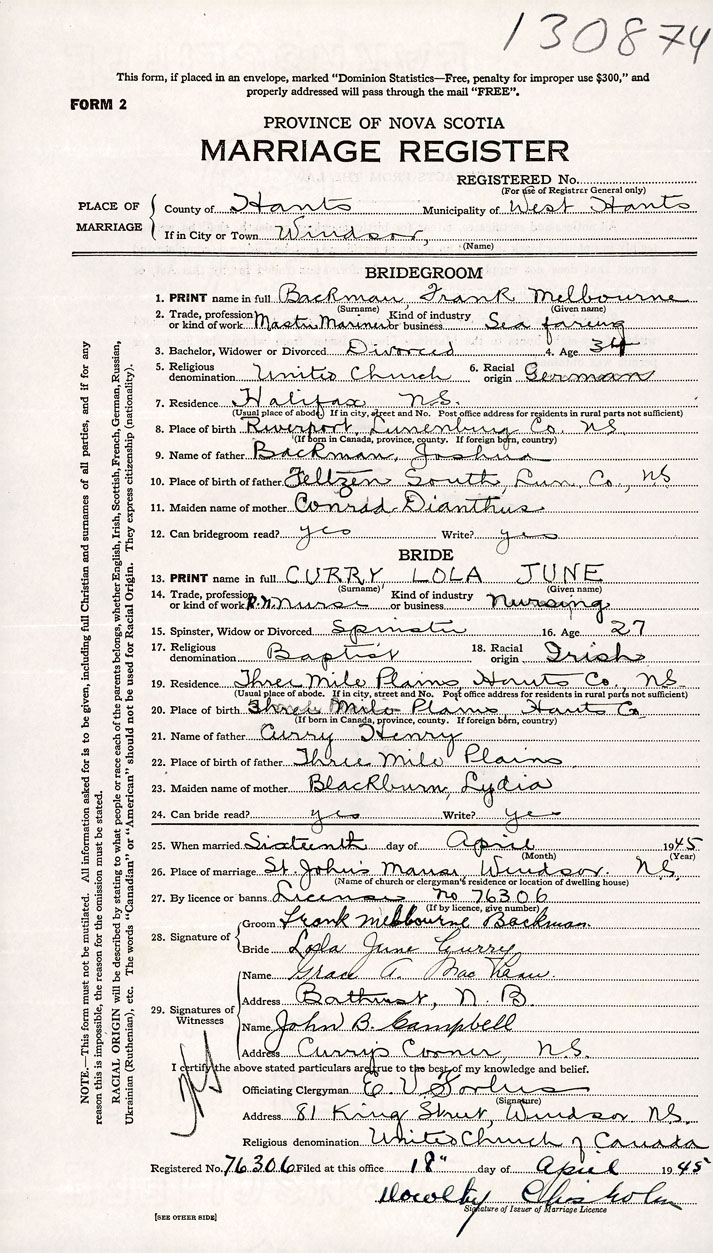 130874
This form, if placed in an envelope, marked "Dominion Statistics—Free, penalty for improper use $300," and
properly addressed will pass through the mail "FREE".
FORM 2
PROVINCE OF NOVA SCOTIA
MARRIAGE REGISTER
REGISTERED No.
(For use of Registrar General only)
PLACE OF MARRIAGE
County of Hants Municipality of West Hants
If in City or Town Windsor,
(Name)
BRIDEGROOM
1. PRINT name in full Backman, Frank Melbourne
(Surname) (Given name)
2. Trade, profession or kind of work Master Mariner Kind of industry or business Sea faring
3. Bachelor, Widower or Divorced Divorced 4. Age 34
5. Religious denomination United Church 6. Racial origin German
7. Residence Halifax N.S.
(Usual place of abode. If in city, street and No. Post office address for residents in rural parts not sufficient)
8. Place of birth Riverport, Lunenburg Co. N.S.
(If born in Canada, province, county. If foreign born, country)
9. Name of father Backman, Joshua
10. Place of birth of father Feltzen South, Lun. Co., N.S
11. Maiden name of mother Conrad Dianthus
12. Can bridegroom read? yes Write? yes
BRIDE
13. PRINT name in full CURRY LOLA JUNE
(Surname) (Given name)
14. Trade, profession or kind of work R.N. Nurse Kind of industry or business Nursing
15. Spinster, Widow or Divorced Spinster 16. Age 27
17. Religious denomination Baptist 18. Racial origin Irish
19. Residence Three Mile Plains, Hants Co., N.S.
(Usual place of abode. If in city, street and No. Post office address for residents in rural parts not sufficient)
20. Place of birth Three Mile Plains Hants Co
(If born in Canada, province, county. If foreign born, country)
21. Name of father Curry Henry
22. Place of birth of father Three Mile Plains
23. Maiden name of mother Blackburn, Lydia
24. Can bride read? yes Write? yes
25. When married Sixteenth day of April 1945
(Month) (Year)
26. Place of marriage St. John's Manse, Windsor. N.S.
(Name of church or clergyman's residence or location of dwelling house)
27. By licence or banns License no 76306
(If by licence, give number)
28. Signature of
Groom Frank Melbourne Backman
Bride Lola June Curry
29. Signatures of Witnesses
Name Grace A. MacKean.
Address Bathurst, N. B.
Name John B. Campbell
Address Currys Corner, N.S.
I certify the above stated particulars are true to the best of my knowledge and belief.
Officiating Clergyman E. V. Forbes
(Signature)
Address 81 King Street, Windsor N.S.
Religious denomination United Church of Canada
Registered No. 76306 Filed at this office 18" day of April 1945
Chisholm
Signature of Issuer of Marriage Licence
[SEE OTHER SIDE]
NOTE.—This form must not be mutilated. All information asked for is to be given, including full Christian and surnames of all parties, and if for any
reason this is impossible, the reason for the omission must be stated.
RACIAL ORIGIN will be described by stating to what people or race each of the parents belongs, whether English, Irish, Scottish, French, German, Russian,
Ukrainian (Ruthenian), etc. The words "Canadian" or "American" should not be used for Racial Origin. They express citizenship (nationality).